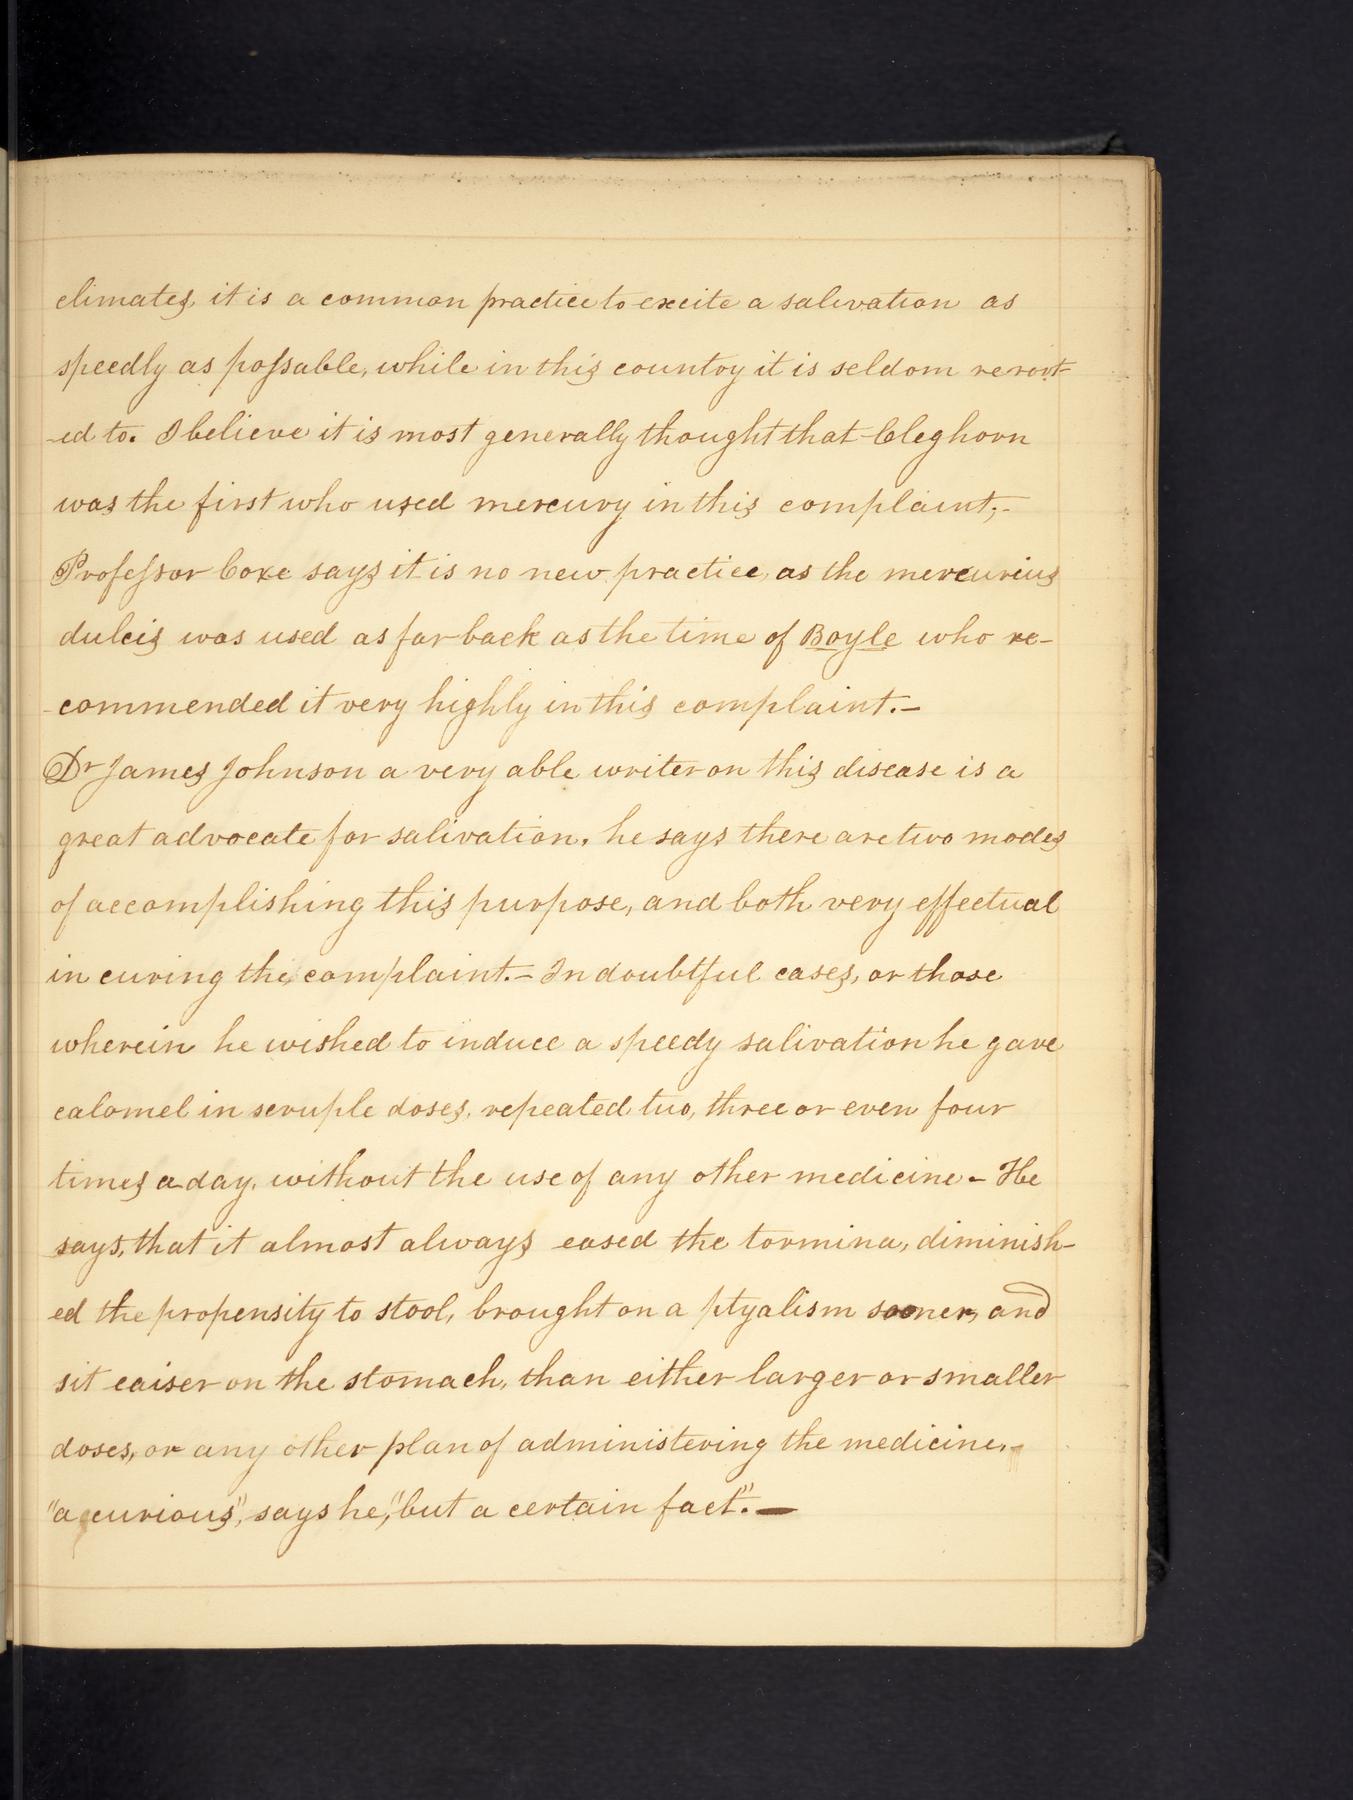 climates, it is a common practice to excite a salivation as
speedly as possable, while in this country it is seldom resort-
-ed to. I believe it is most generally thought that Cleghorn
was the first who used mercury in this complaint;-
Professor Coxe says it is no new practice, as the mercurius
dulcis was used as far back as the time of Boyle who re-
-commended it very highly in this complaint.-
Dr James Johnson a very able writer on this disease is a
great advocate for salivation. he says there are two modes
of accomplishing this purpose, and both very effectual
in curing the complaint.- In doubtful cases, or those
wherein he wished to induce a speedy salivation he gave
calomel in scruple doses, repeated two, three or even four
times a day, without the use of any other medicine - He
says, that it almost always eased the tormina, diminish-
ed the propensity to stool, brought on a ptyalism sooner, and
sit eaiser on the stomach, than either larger or smaller
doses, or any other plan of administering the medicine,-
"a curious", says he, "but a certain fact".-